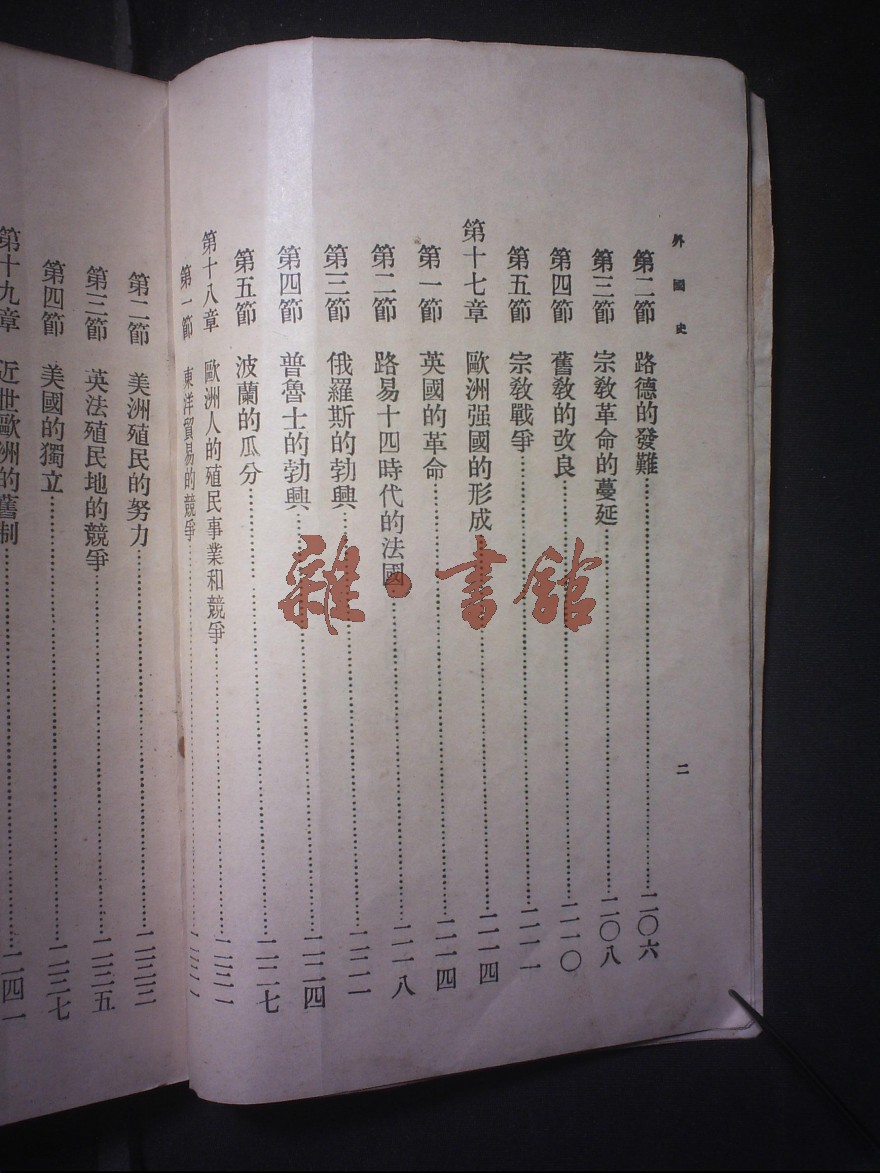 外國史
第二節 路德的發難……二〇六
第三節 宗教革命的蔓延……二〇八
第四節 舊教的改良……二一〇
第五節 宗教戰爭……二一一
第十七章 歐洲强國的形成……二一四
第一節 英國的革命……二一四
第二節 路易十四時代的法國……二一八
第三節 俄羅斯的勃興……二二一
第四節 普魯士的勃興……二二四
第五節 波蘭的瓜分……二二七
第十八章 歐洲人的殖民事業和競爭……二三一
第一節 東洋貿易的競爭……二三一
二
第二節 美洲殖民的努力……二三三
第三節 英法殖民地的競爭……二三五
第四節 美國的獨立……二三七
第十九章 近世歐洲的舊制……二四一
雜·書館